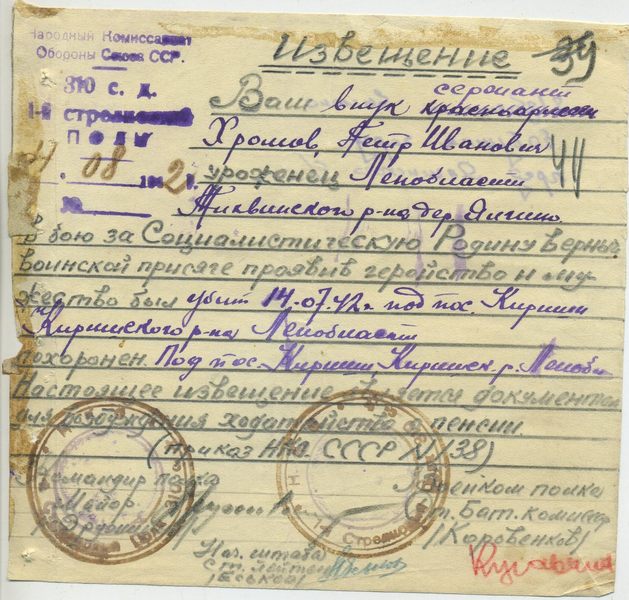 Народный Комиссариат
Обороны Союза ССР.
310 с. д.
1-й стрелковый
ПОЛК
08 1942г.
№
Извещение 39
сержант
Ваш внук красноармеец
Хромов Петр Иванович 44
уроженец Ленобласти
Тихвинского р-на дер. Ялгино
В бою за Социалистическую Родину верный
воинской присяге проявив геройство и му
жество был убит 14.07.42г. под пос. Кириши
Киришского р-на Ленобласти
похоронен Под пос. Кириши Киришск. р. Ленобл
Настоящее извещение является документом
для возбуждения ходатайства о пенсии.
(приказ НКО СССР N 138)
Командир полка
Майор
Военком полка
Ст. Бат. Комиссар
(Коровенков)
Нач. штаба
ст. лейтен
(Еськов)